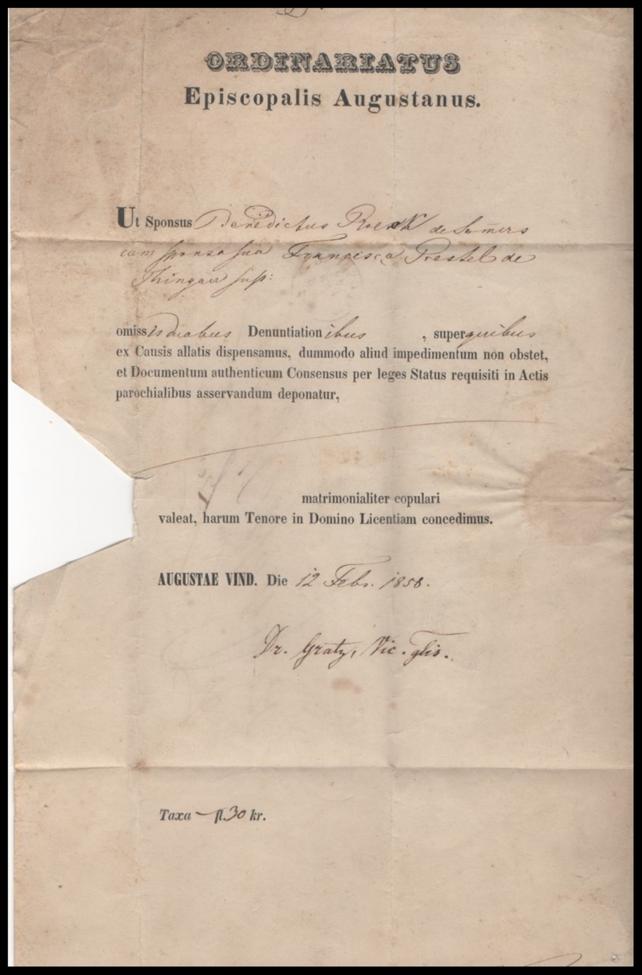 ORDINARIATUS
Episcopalis Augustanus.
Ut Sponsus Benedictus de
cum sponsa sua Francisca Prestel de
omissis duabus Denuntiationibus , super quibus
ex Causis allatis dispensamus, dummodo aliud impedimentum non obstet,
et Documentum authenticum Consensus per leges Status requisiti in Actis
parochialibus asservandum deponatur,
matrimonialiter copulari
valeat, harum Tenore in Domino Licentiam concedimus.
AUGUSTAE VIND. Die 12 Febr. 1858.
Dr. Gratz, Vic. glis.
Taxa — fl. 30 kr.